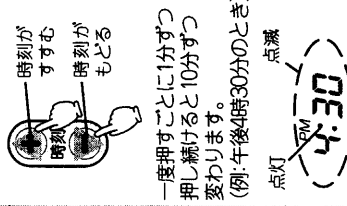 時刻が
すすむ
時刻
時刻が
もどる
一度押すごとに1分ずつ
押し続けると10分ずつ
変わります。
(例:午後4時30分のとき)
点灯
点滅
PM
4:30